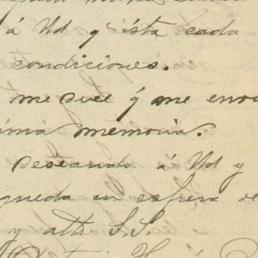 á Ud y ésta cada
condiciones.
me dice q̃ me
memoria.
Deseando á Ud y
queda en espera de
y atto S.S.